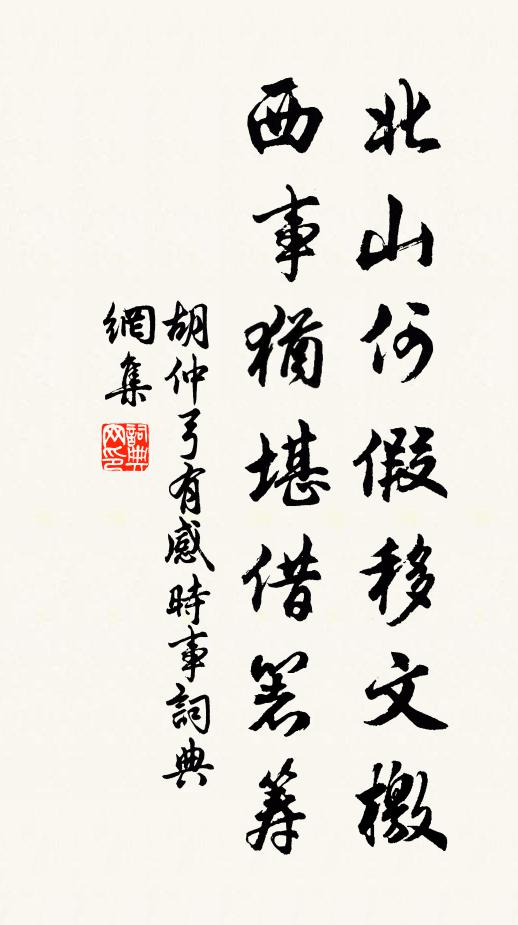 北山何假移文檄
西事猶堪借箸籌
胡仲弓有感時事詞典
網集
詞典
网印